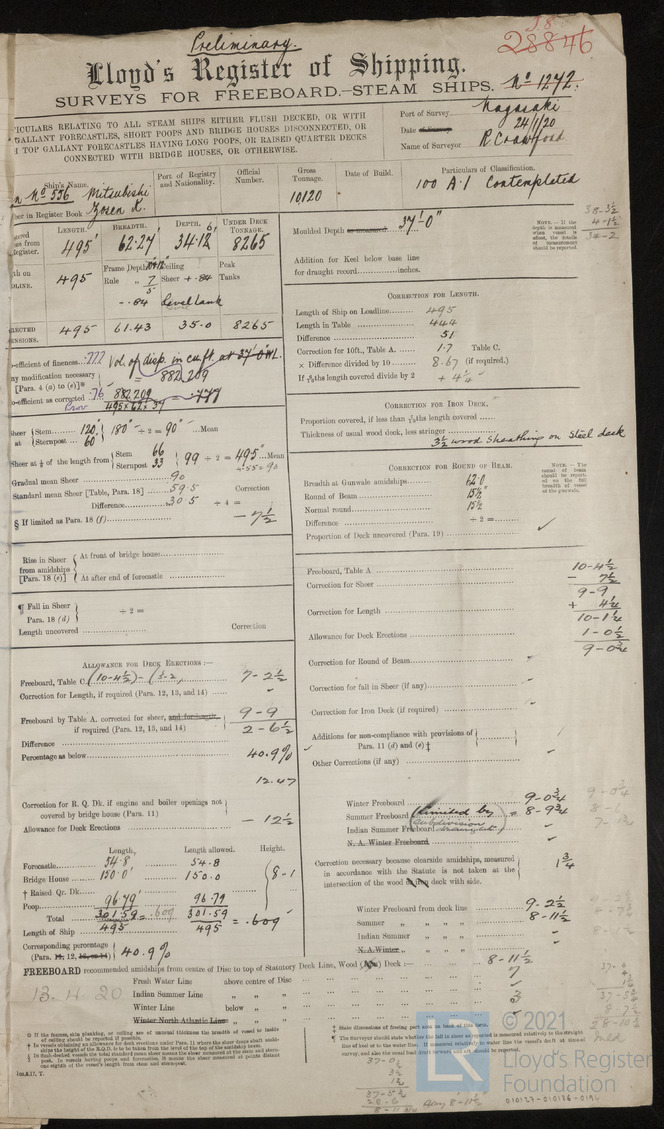 Preliminary.
28846
Lloyd's Register of Shipping.
SURVEYS FOR FREEBOARD.—STEAM SHIPS. No 1272.
ICULARS RELATING TO ALL STEAM SHIPS EITHER FLUSH DECKED, OR WITH
GALLANT FORECASTLES, SHORT POOPS AND BRIDGE HOUSES DISCONNECTED, OR
TOP GALLANT FORECASTLES HAVING LONG POOPS, OR RAISED QUARTER DECKS
CONNECTED WITH BRIDGE HOUSES, OR OTHERWISE.
Port of Survey Nagasaki
Date 24/1/20
Name of Surveyor R. Crawford
Ship's Name. Port of Registry and Nationality. Official Number. Gross Tonnage. Date of Build. Particulars of Classification.
No 556 Mitsubishi
ber in Register Book Zosen K.
10120
100 A.1 Contemplated
LENGTH. BREADTH. DEPTH. UNDER DECK TONNAGE.
495' 62.27' 34.12' 8265
495 Frame Depth Ceiling Peak
Rule " 7/5 Sheer + .84 Tanks
- .84 Level tank
495 61.43 35.0 8265
Moulded Depth 37'-0"
NOTE.—If the depth is measured when vessel is afloat, the details of measurement should be reported.
38-3½
4-1½
34-2
Addition for Keel below base line
for draught record inches.
CORRECTION FOR LENGTH.
Length of Ship on Loadline 495
Length in Table 444
Difference 51
Correction for 10ft., Table A. 1.7 Table C.
× Difference divided by 10 8.67 (if required.)
If 6/10ths length covered divide by 2 + 4¼
efficient of fineness .777 Vol. of disp. in cu ft. at 37'-0" WL.
ny modification necessary = 882,209
[Para. 4 (a) to (e)]*
efficient as corrected .76 882,209 / 495×62×37 = .777
Prov
Sheer at Stem 120" 180" ÷ 2 = 90" Mean
Sternpost 60"
Sheer at ⅛ of the length from Stem 66 99 ÷ 2 = 49.5" Mean
Sternpost 33 ÷.55 = 90
Gradual mean Sheer 90
Standard mean Sheer [Table, Para. 18] 59.5 Correction
Difference 30.5 ÷ 4 =
§ If limited as Para. 18 (f) - 7½
CORRECTION FOR IRON DECK.
Proportion covered, if less than 7/10ths length covered
Thickness of usual wood deck, less stringer
3½ wood sheathing on steel deck
CORRECTION FOR ROUND OF BEAM.
Breadth at Gunwale amidships 62.0
Round of Beam 15½"
Normal round 15½
Difference ÷ 2 =
Proportion of Deck uncovered (Para. 19)
NOTE.—The round of beam should be reported on the full breadth of vessel at the gunwale.
Rise in Sheer from amidships [Para. 18 (e)] At front of bridge house
At after end of forecastle
¶ Fall in Sheer Para. 18 (d) ÷ 2 =
Length uncovered Correction
Freeboard, Table A 10-4½
Correction for Sheer - 7½
9-9
Correction for Length + 4½
10-1½
Allowance for Deck Erections 1-0½
9-0¾
Correction for Round of Beam
Correction for fall in Sheer (if any)
Correction for Iron Deck (if required)
Additions for non-compliance with provisions of Para. 11 (d) and (e) ‡
Other Corrections (if any)
ALLOWANCE FOR DECK ERECTIONS:—
Freeboard, Table C. (10-4½) - (3-2) 7-2½
Correction for Length, if required (Para. 12, 13, and 14)
Freeboard by Table A, corrected for sheer, and for length 9-9
if required (Para. 12, 13, and 14) 2-6½
Difference
Percentage as below 40.9%
12.47
Correction for R. Q. Dk. if engine and boiler openings not covered by bridge house (Para. 11)
Allowance for Deck Erections - 12½
Length. Length allowed. Height.
Forecastle 54.8 54.8
Bridge House 150.0' 150.0 8-1
† Raised Qr. Dk.
Poop 96.79' 96.79
Total 301.59 = .609 301.59
Length of Ship 495 495 = .609
Corresponding percentage
(Para. 11, 12, 13, or 14) 40.9%
Winter Freeboard 9-0¾
Summer Freeboard (Limited by = 8-9¾
Indian Summer Freeboard subdivision draught)
N. A. Winter Freeboard
Correction necessary because clearside amidships, measured
in accordance with the Statute is not taken at the
intersection of the wood or iron deck with side. 1¾
Winter Freeboard from deck line 9-2½
Summer " " " 8-11½
Indian Summer " " "
N. A. Winter " " "
FREEBOARD recommended amidships from centre of Disc to top of Statutory Deck Line, Wood (Iron) Deck:— 8-11½
Fresh Water Line above centre of Disc 7
13.4.20 Indian Summer Line " "
Winter Line below " 3
Winter North Atlantic Line " "
© 2021
Lloyd's Register
Foundation
010127-010136-0196